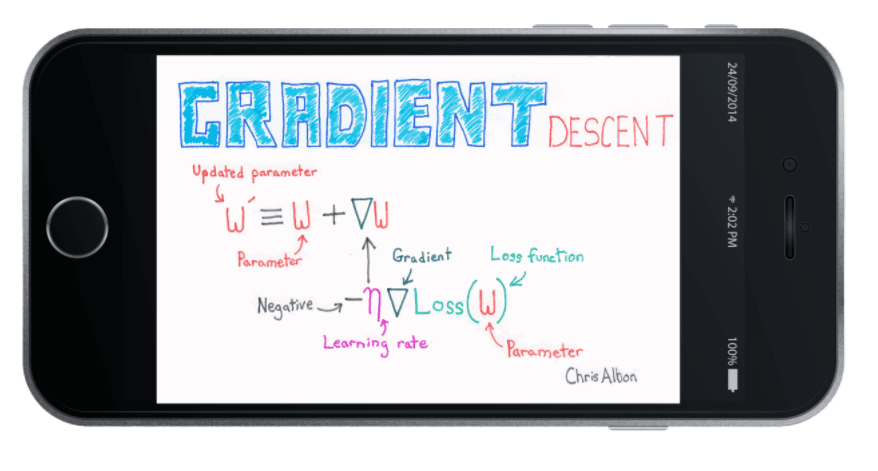 GRADIENT DESCENT
Updated parameter
w′ ≡ w + ∇w
Parameter
Gradient
Loss function
Negative
-η∇Loss(w)
Learning rate
Parameter
Chris Albon
24/09/2014
2:02 PM
100%